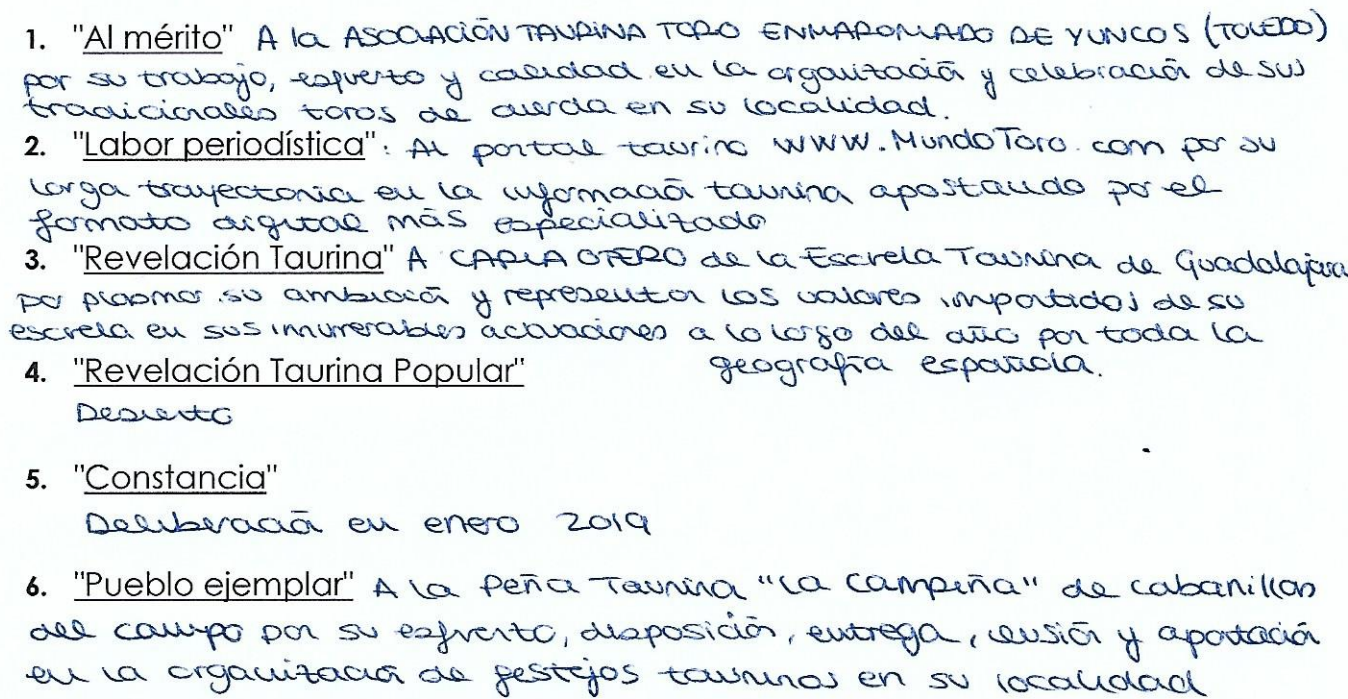 1. "Al mérito" A la ASOCIACIÓN TAURINA TORO ENMAROMADO DE YUNCOS (TOLEDO)
por su trabajo, esfuerzo y calidad en la organización y celebración de sus
tradicionales toros de cuerda en su localidad.
2. "Labor periodística": Al portal taurino WWW.MundoToro.com por su
larga trayectoria en la información taurina apostando por el
formato digital más especializado
3. "Revelación Taurina" A CARLA OTERO de la Escuela Taurina de Guadalajara
por plasmar su ambición y representar los valores impartidos de su
escuela en sus innumerables actuaciones a lo largo del año por toda la
geografía española.
4. "Revelación Taurina Popular"
Desierto
5. "Constancia"
Deliberación en enero 2019
6. "Pueblo ejemplar" A la Peña Taurina "La Campiña" de Cabanillas
del campo por su esfuerzo, disposición, entrega, ilusión y aportación
en la organización de festejos taurinos en su localidad